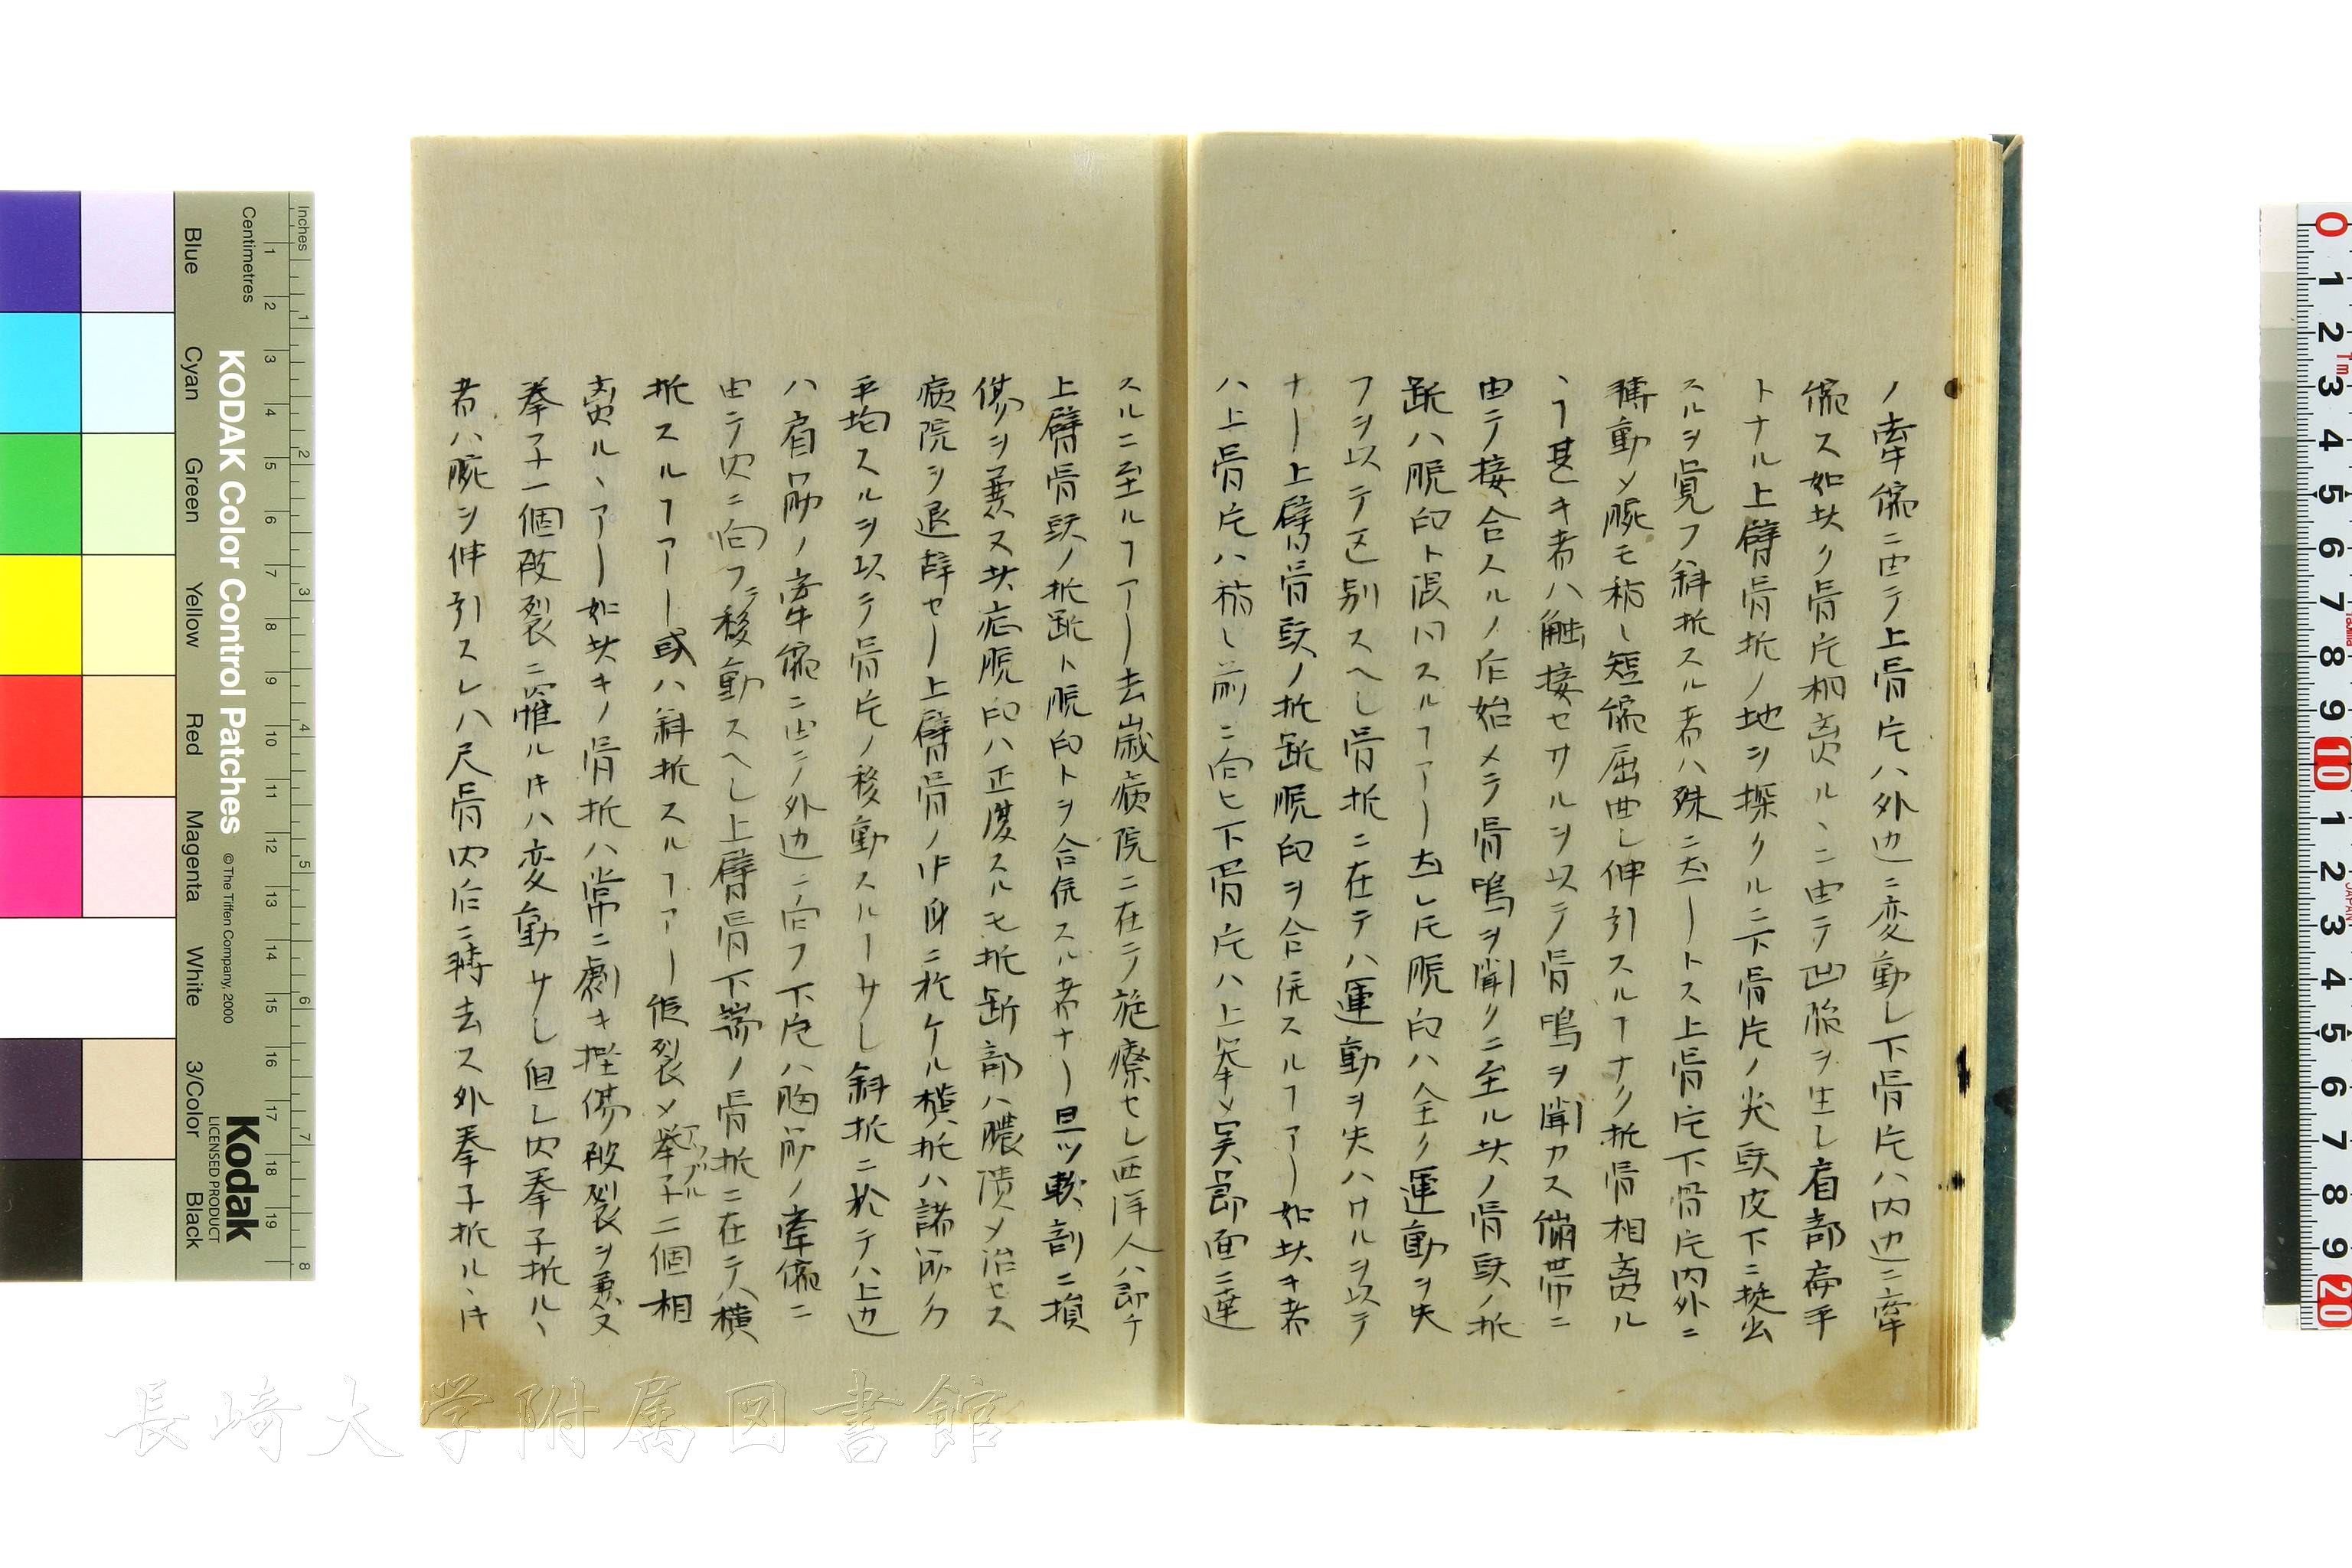 ノ牽縮ニ由テ上骨片ハ外辺ニ変動し下骨片ハ内辺ニ牽
縮ス如此ク骨片相齟ルヽニ由テ凹陥ヲ生し肩部扁平
トナル上臂骨折ノ地ヲ探クルニ下骨片ノ尖頭皮下ニ挺出
スルヲ覚フ斜折スル者ハ殊ニ太ートス上骨片下骨片内外ニ
転動メ腕モ稍し短縮屈曲し伸引スルヿナク折骨相齟ル
ヽヿ甚キ者ハ触接セサルヲ以テ骨鳴ヲ聞カス繃帯ニ
由テ接合スルノ后始メテ骨鳴ヲ聞クニ至ル此ノ骨頭ノ折
跐ハ脱臼ト誤リスルヿアー太レ𪜈脱臼ハ全ク運動ヲ失
フヲ以テ区別スヘし骨折ニ在テハ運動ヲ失ハサルヲ以テ
ナー上臂骨頭ノ折跐脱臼ヲ合併スルヿアー如此キ者
ハ上骨片ハ稍し前ニ向ヒ下骨片ハ上挙メ関節面ニ達
スルニ至ルヿアー去歳病院ニ在テ施療セし西洋人ハ即チ
上臂骨頭ノ折跐ト脱臼トヲ合併スル者ナー且ツ軟部ニ損
傷ヲ兼ヌ此症脱臼ハ正復スルモ折断部ハ膿潰メ治セス
病院ヲ退辞セー上臂骨ノ中身ニ於ケル横折ハ諸筋力
平均スルヲ以テ骨片ノ移動スルーサし斜折ニ於テハ上辺
ハ肩筋ノ牽縮ニ由テ外辺ニ向フ下片ハ胸筋ノ牽縮ニ
由テ内ニ向フテ移動スヘし上臂骨下端ノ骨折ニ在テハ横
折スルヿアー或ハ斜折スルヿアー縦裂メ挙子二個相
齟ルヽアー如此キノ骨折ハ常ニ劇キ挫傷破裂ヲ兼又
挙子一個破裂ニ罹ルキハ変動サし但し内挙子折ルヽ
者ハ腕ヲ伸引スレハ尺骨内后ニ転去ス外挙子折ルヽキ
KODAK Color Control Patches
© The Tiffen Company, 2000
Kodak
LICENSED PRODUCT
Inches
Centimetres
Blue
Cyan
Green
Yellow
Red
Magenta
White
3/Color
Black
長崎大学附属図書館